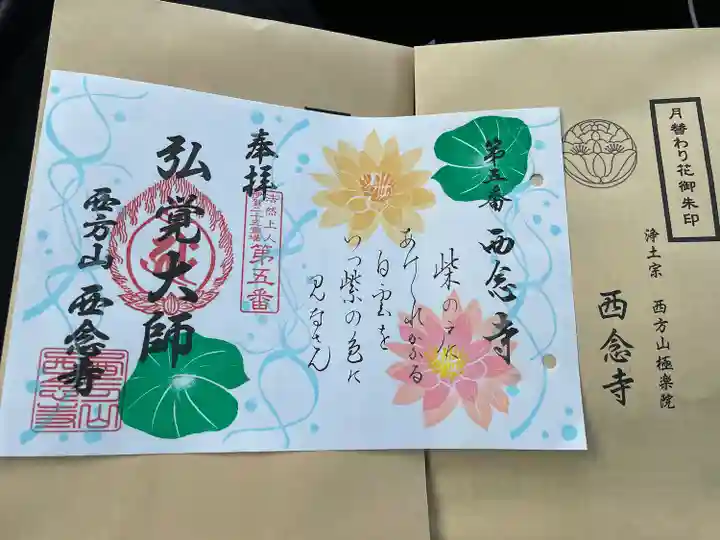 月替わり花御朱印
浄土宗 西方山極楽院
西念寺
第五番 西念寺
柴の戸に
あけくれかかる
白雲を
いつ紫の色に
見なさん
奉拝
法然上人
第五番
弘覚大師
西方山 西念寺